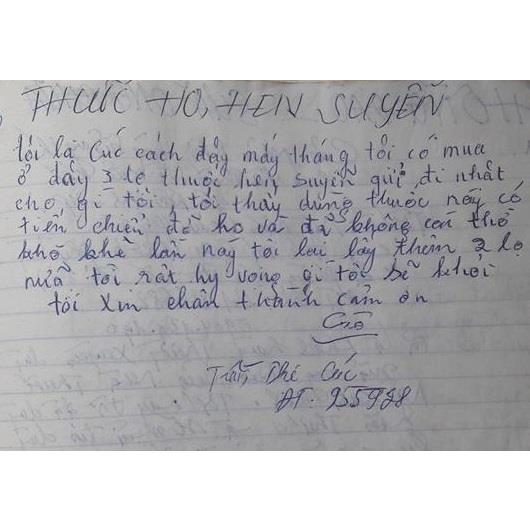 THUỐC HO, HEN SUYỄN
tôi là Cúc cách đây mấy tháng tôi có mua
ở đây 3 lọ thuốc hen suyễn gửi đi nhật
cho gì tôi, tôi thấy dùng thuốc này có
tiến chiển đỡ ho và đã không còn thở
khò khè lần này tôi lại lấy thêm 2 lọ
nữa tôi rất hy vọng gì tôi sẽ khỏi
tôi xin chân thành cảm ơn
Trần Thị Cúc
ĐT: 255928